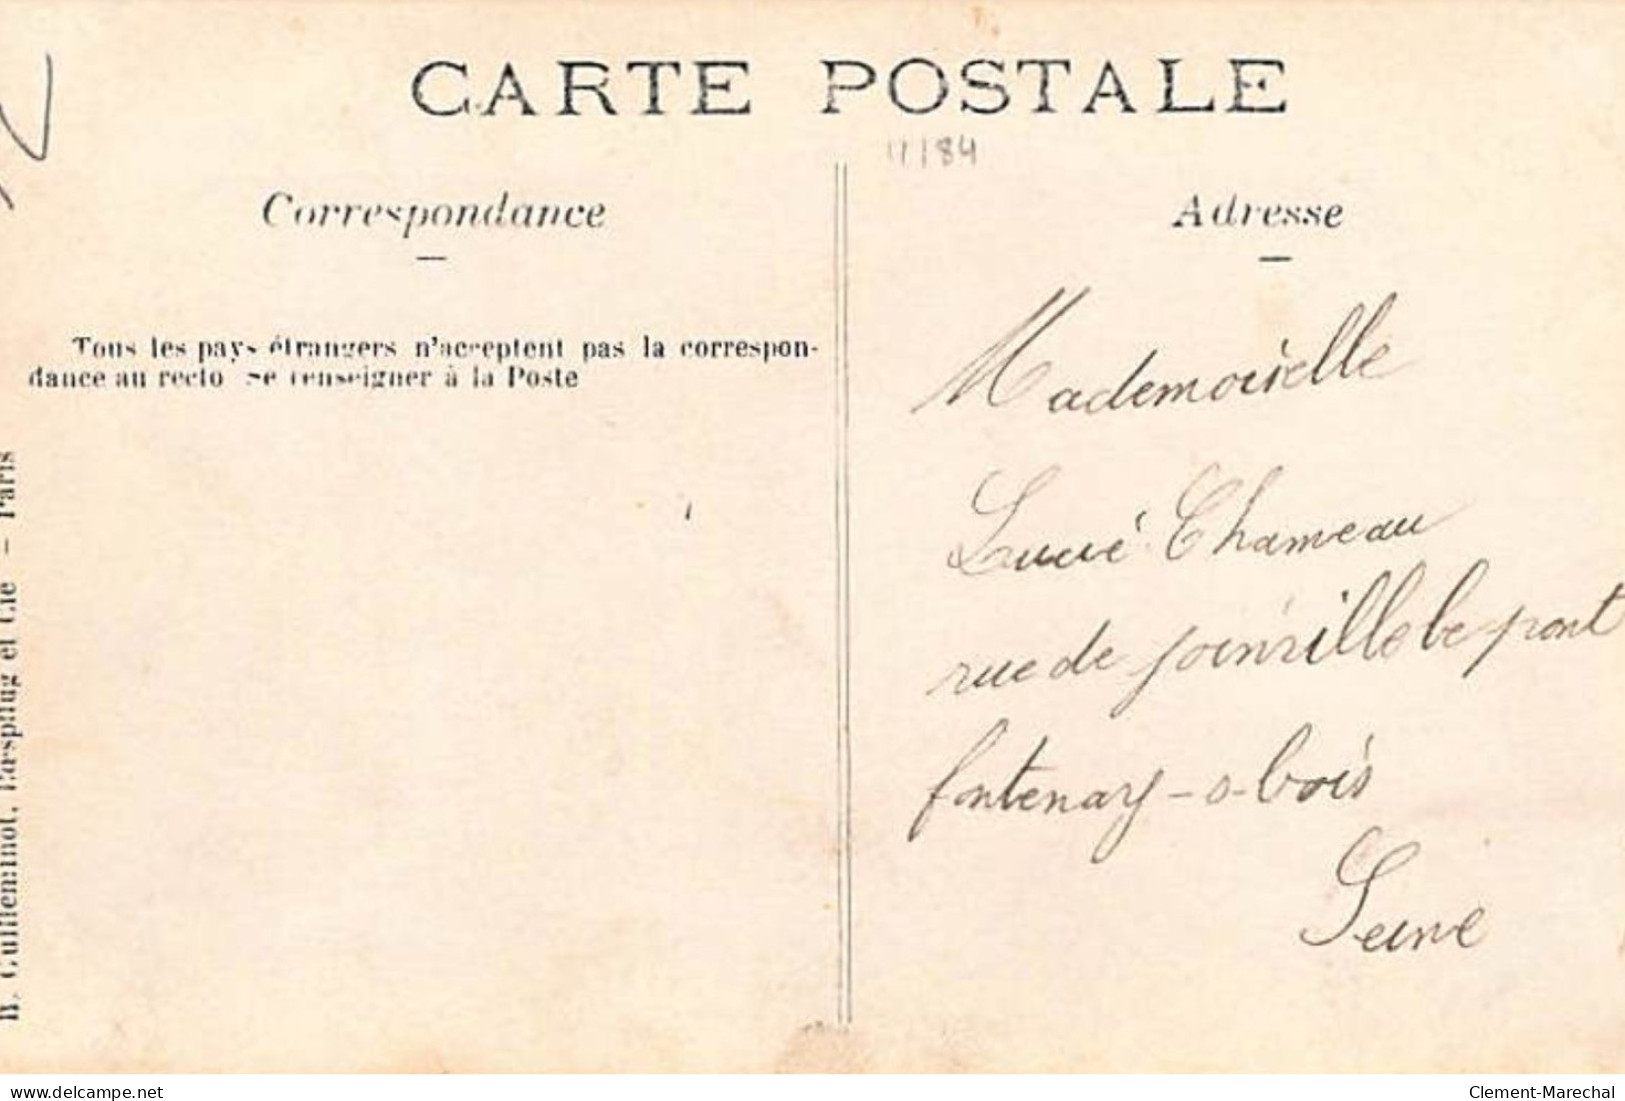 CARTE POSTALE
11/84
Correspondance
Adresse
Tous les pays étrangers n'acceptent pas la correspon-
dance au recto Se renseigner à la Poste
B. Guilleminot, Bœspflug et Cie – Paris
Mademoiselle
Lucie Chameau
rue de joinville le pont
fontenay-s-bois
Seine
delcampe.net
Clement-Marechal